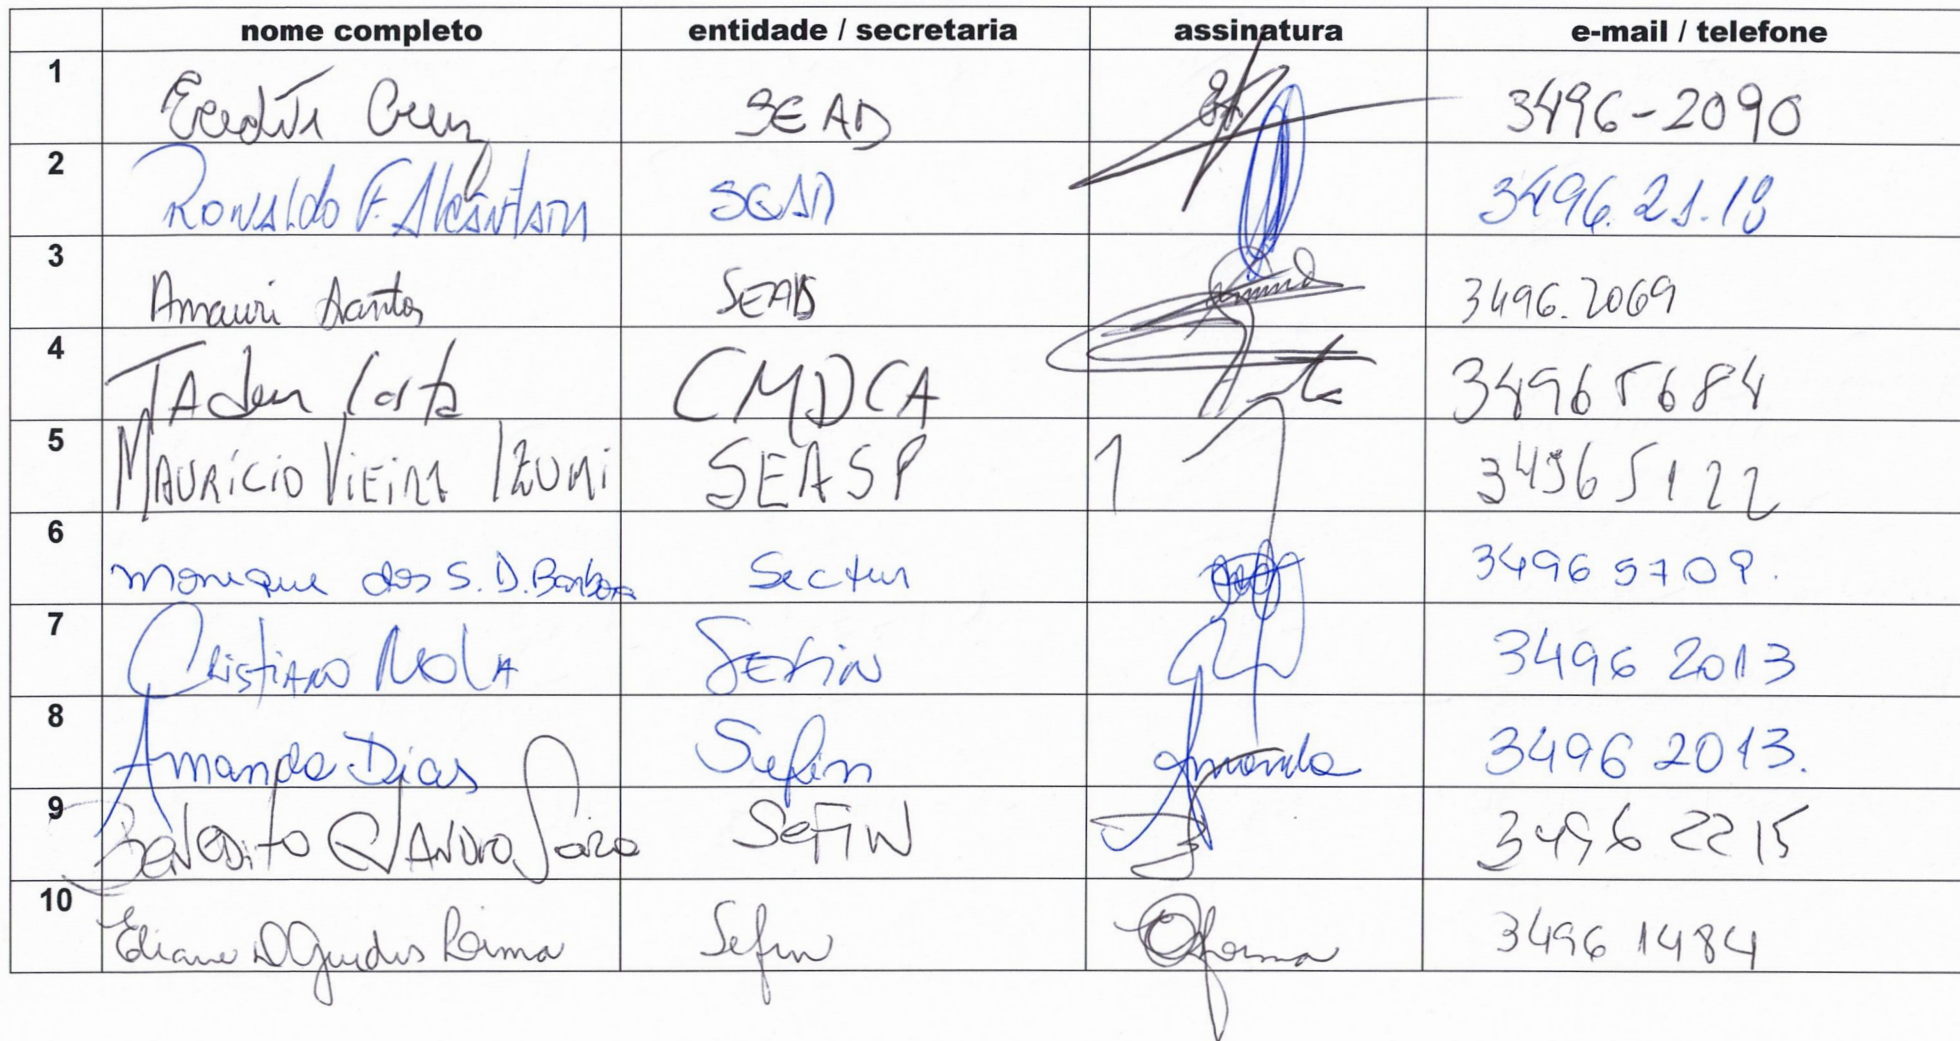 nome completo entidade / secretaria assinatura e-mail / telefone
1 Cruz SEAD 3496-2090
2 Ronaldo F. Alcântara SEAD 3496.21.18
3 Amauri Santos SEAD 3496.2069
4 Tadeu Costa CMDCA 3496 5684
5 Maurício Vieira Izumi SEASP 3496 5122
6 Monique dos S. D. Barbosa Sectur 3496 5709.
7 Cristiano Mola Sefin 3496 2013
8 Amanda Dias Sefin Amanda 3496 2013.
9 Benedito SEFIN 3496 2215
10 Eliane D Guedes Lima Sefin 3496 1484